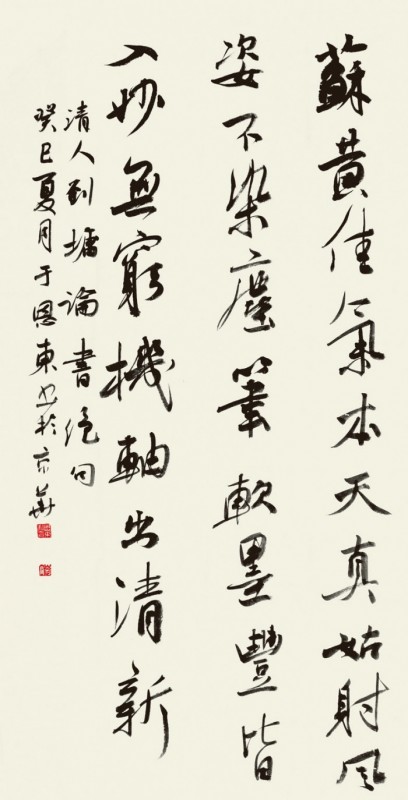 蘇黄佳氣本天真姑射風
姿不染塵筆軟墨豐皆
入妙無窮機軸出清新
清人劉墉論書絶句
癸巳夏月于恩東書於京華